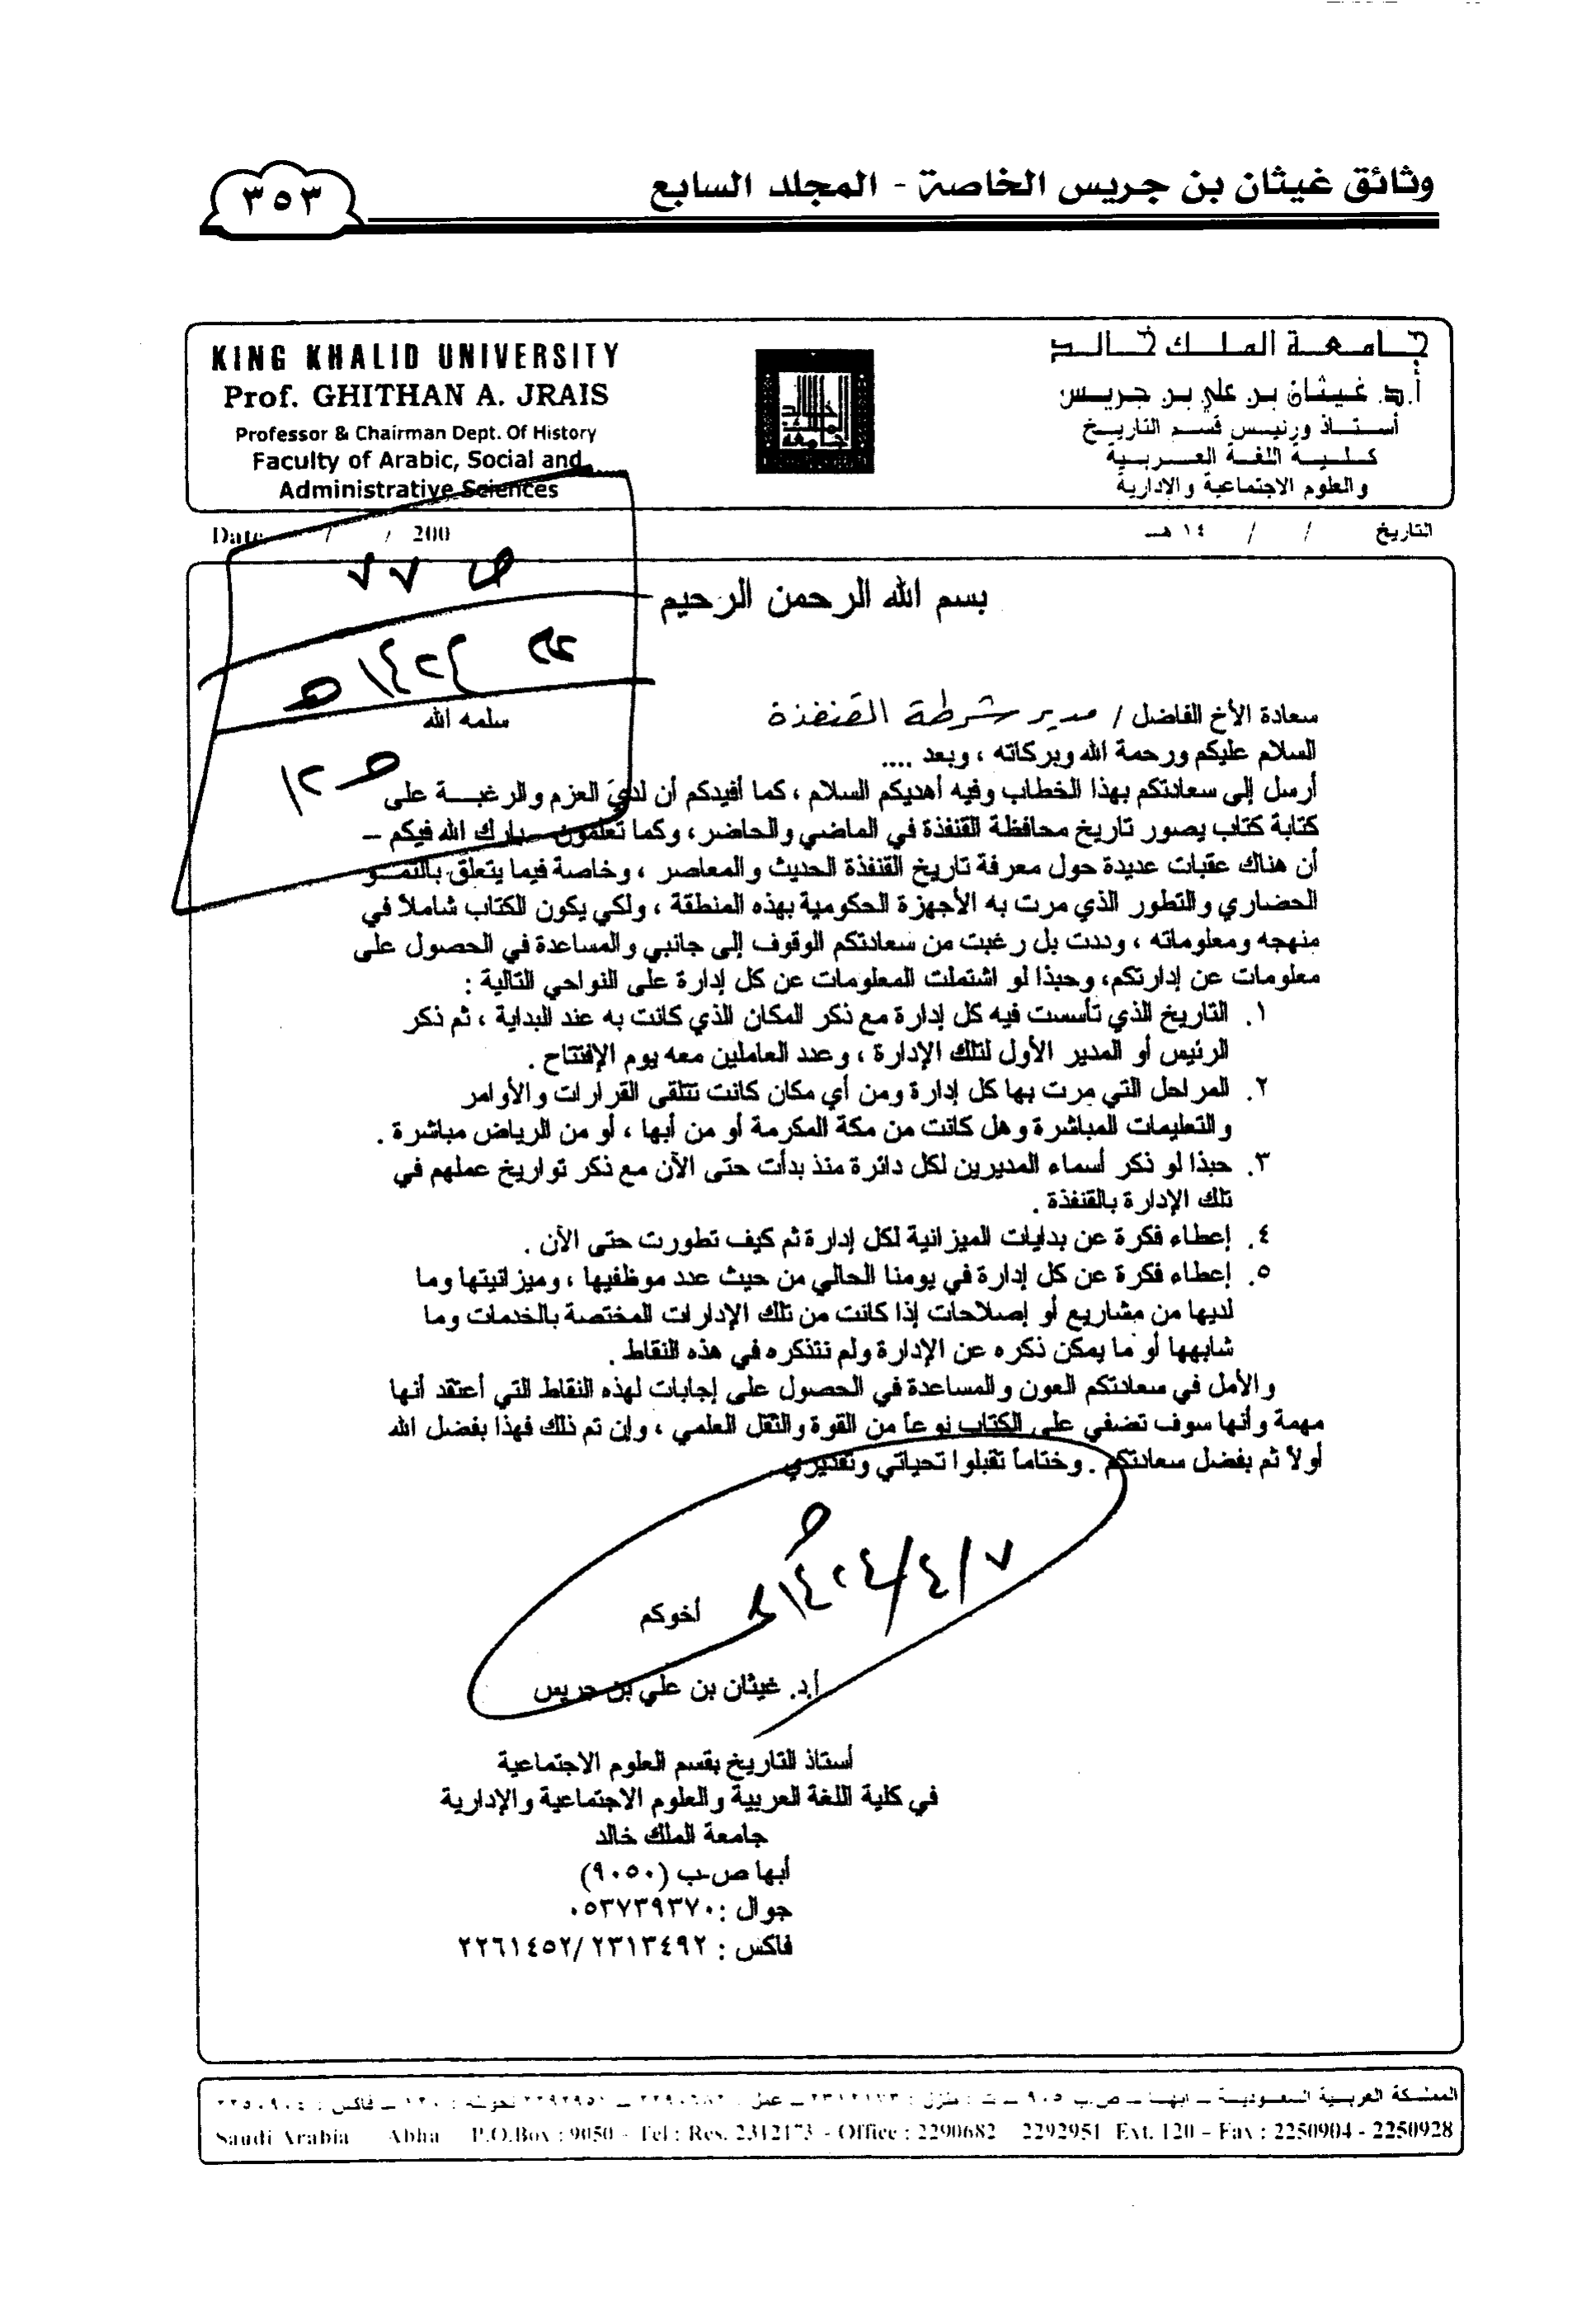 وثائق غيثان بن جريس الخاصة - المجلد السابع
٣٥٣
KING KHALID UNIVERSITY
Prof. GHITHAN A. JRAIS
Professor & Chairman Dept. Of History
Faculty of Arabic, Social and
Administrative Sciences
جامعة الملك خالد
أ.د. غيثان بن علي بن جريس
أستاذ ورئيس قسم التاريخ
كلية اللغة العربية
والعلوم الاجتماعية والإدارية
Date / / 200
التاريخ / / ١٤ هـ
ص ٧٧
عام ١٤٢٤هـ
ص ١٢
بسم الله الرحمن الرحيم
سعادة الأخ الفاضل / مدير شرطة القنفذة سلمه الله
السلام عليكم ورحمة الله وبركاته ، وبعد ....
أرسل إلى سعادتكم بهذا الخطاب وفيه أهديكم السلام ، كما أفيدكم أن لديَ العزم والرغبة على
كتابة كتاب يصور تاريخ محافظة القنفذة في الماضي والحاضر، وكما تعلمون – بارك الله فيكم –
أن هناك عقبات عديدة حول معرفة تاريخ القنفذة الحديث والمعاصر ، وخاصة فيما يتعلق بالنمو
الحضاري والتطور الذي مرت به الأجهزة الحكومية بهذه المنطقة ، ولكي يكون الكتاب شاملاً في
منهجه ومعلوماته ، وددت بل رغبت من سعادتكم الوقوف إلى جانبي والمساعدة في الحصول على
معلومات عن إدارتكم، وحبذا لو اشتملت المعلومات عن كل إدارة على النواحي التالية :
١. التاريخ الذي تأسست فيه كل إدارة مع ذكر المكان الذي كانت به عند البداية ، ثم ذكر
الرئيس أو المدير الأول لتلك الإدارة ، وعدد العاملين معه يوم الإفتتاح .
٢. المراحل التي مرت بها كل إدارة ومن أي مكان كانت تتلقى القرارات والأوامر
والتعليمات المباشرة وهل كانت من مكة المكرمة أو من أبها ، أو من الرياض مباشرة .
٣. حبذا لو ذكر أسماء المديرين لكل دائرة منذ بدأت حتى الآن مع ذكر تواريخ عملهم في
تلك الإدارة بالقنفذة .
٤. إعطاء فكرة عن بدايات الميزانية لكل إدارة ثم كيف تطورت حتى الآن .
٥. إعطاء فكرة عن كل إدارة في يومنا الحالي من حيث عدد موظفيها ، وميزانيتها وما
لديها من مشاريع أو إصلاحات إذا كانت من تلك الإدارات المختصة بالخدمات وما
شابهها أو ما يمكن ذكره عن الإدارة ولم نتذكره في هذه النقاط .
والأمل في سعادتكم العون والمساعدة في الحصول على إجابات لهذه النقاط التي أعتقد أنها
مهمة وأنها سوف تضفي على الكتاب نوعاً من القوة والثقل العلمي ، وإن تم ذلك فهذا بفضل الله
أولاً ثم بفضل سعادتكم . وختاماً تقبلوا تحياتي وتقديري
٧/٤/١٤٢٤هـ
أخوكم
أ.د. غيثان بن علي بن جريس
أستاذ التاريخ بقسم العلوم الاجتماعية
في كلية اللغة العربية والعلوم الاجتماعية والإدارية
جامعة الملك خالد
أبها ص.ب (٩٠٥٠)
جوال : ٠٥٣٧٣٩٣٧٠
فاكس : ٢٣١٣٤٩٢/ ٢٢٦١٤٥٢
المملكة العربية السعودية – أبها – ص.ب ٩٠٥ – ت : منزل : ٢٣١٢١٧٣ – عمل : ٢٢٩٠٦٨٢ – ٢٢٩٢٩٥١ تحويلة : ١٢٠ – فاكس : ٢٢٥٠٩٠٤
Saudi Arabia Abha P.O.Box : 9050 - Tel : Res. 2312173 - Office : 2290682 2292951 Ext. 120 - Fax : 2250904 - 2250928